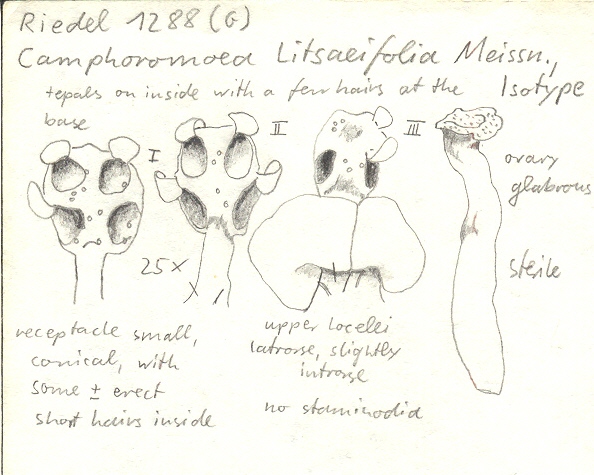 Riedel 1288 (G)
Camphoromoea Litsaeifolia Meissn.,
Isotype
tepals on inside with a few hairs at the
base
I
II
III
ovary
glabrous
25x
sterile
receptacle small,
conical, with
some ± erect
short hairs inside
upper locelli
latrorse, slightly
introrse
no staminodia